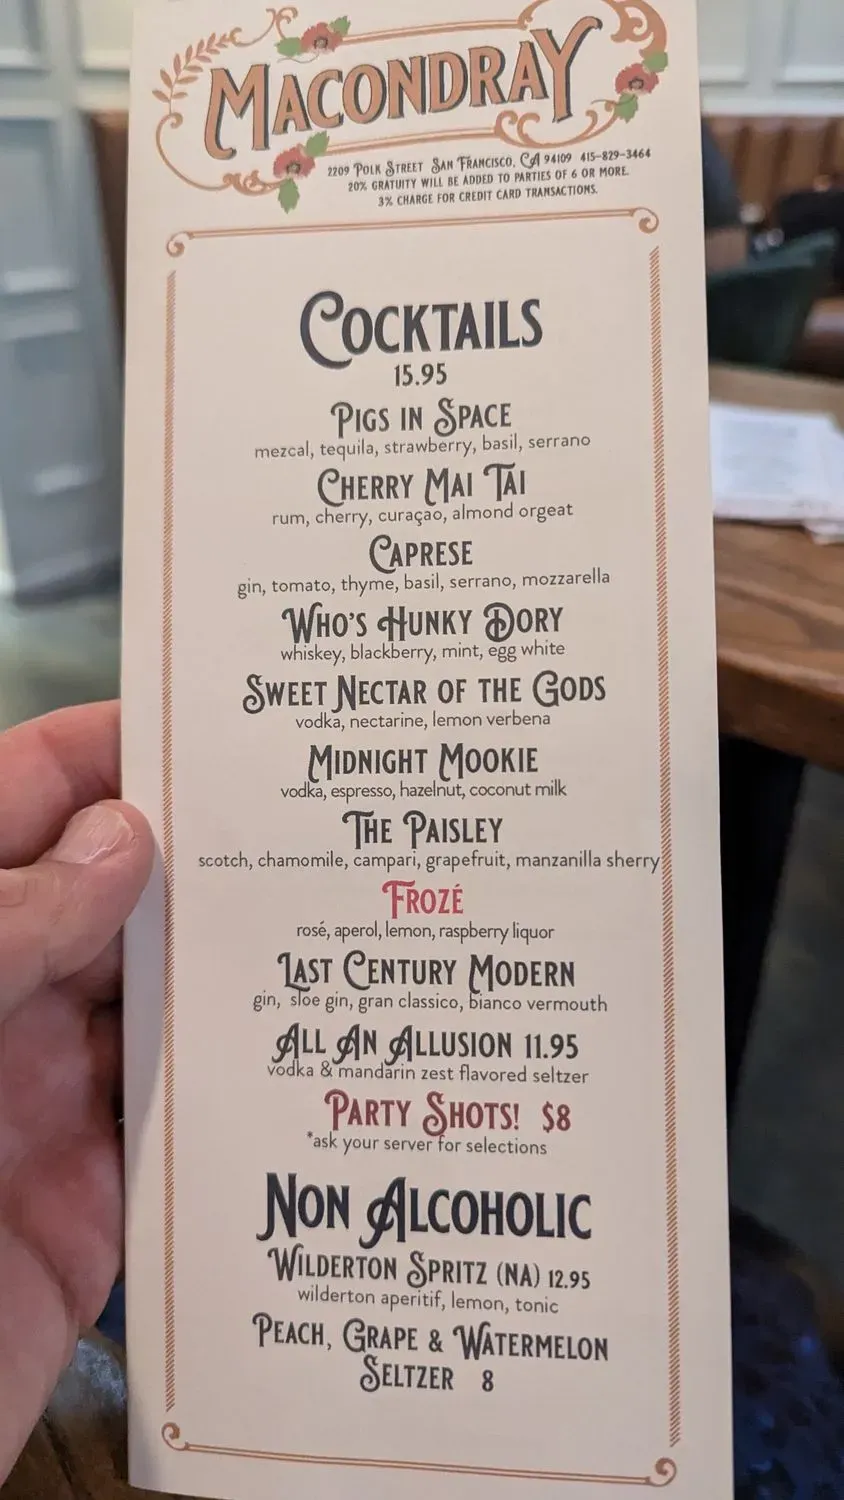 MACONDRAY
2209 POLK STREET SAN FRANCISCO, CA 94109 415-829-3464
20% GRATUITY WILL BE ADDED TO PARTIES OF 6 OR MORE.
3% CHARGE FOR CREDIT CARD TRANSACTIONS.
COCKTAILS
15.95
PIGS IN SPACE
mezcal, tequila, strawberry, basil, serrano
CHERRY MAI TAI
rum, cherry, curaçao, almond orgeat
CAPRESE
gin, tomato, thyme, basil, serrano, mozzarella
WHO'S HUNKY DORY
whiskey, blackberry, mint, egg white
SWEET NECTAR OF THE GODS
vodka, nectarine, lemon verbena
MIDNIGHT MOOKIE
vodka, espresso, hazelnut, coconut milk
THE PAISLEY
scotch, chamomile, campari, grapefruit, manzanilla sherry
FROZÉ
rosé, aperol, lemon, raspberry liquor
LAST CENTURY MODERN
gin, sloe gin, gran classico, bianco vermouth
ALL AN ALLUSION 11.95
vodka & mandarin zest flavored seltzer
PARTY SHOTS! $8
*ask your server for selections
NON ALCOHOLIC
WILDERTON SPRITZ (NA) 12.95
wilderton aperitif, lemon, tonic
PEACH, GRAPE & WATERMELON
SELTZER 8